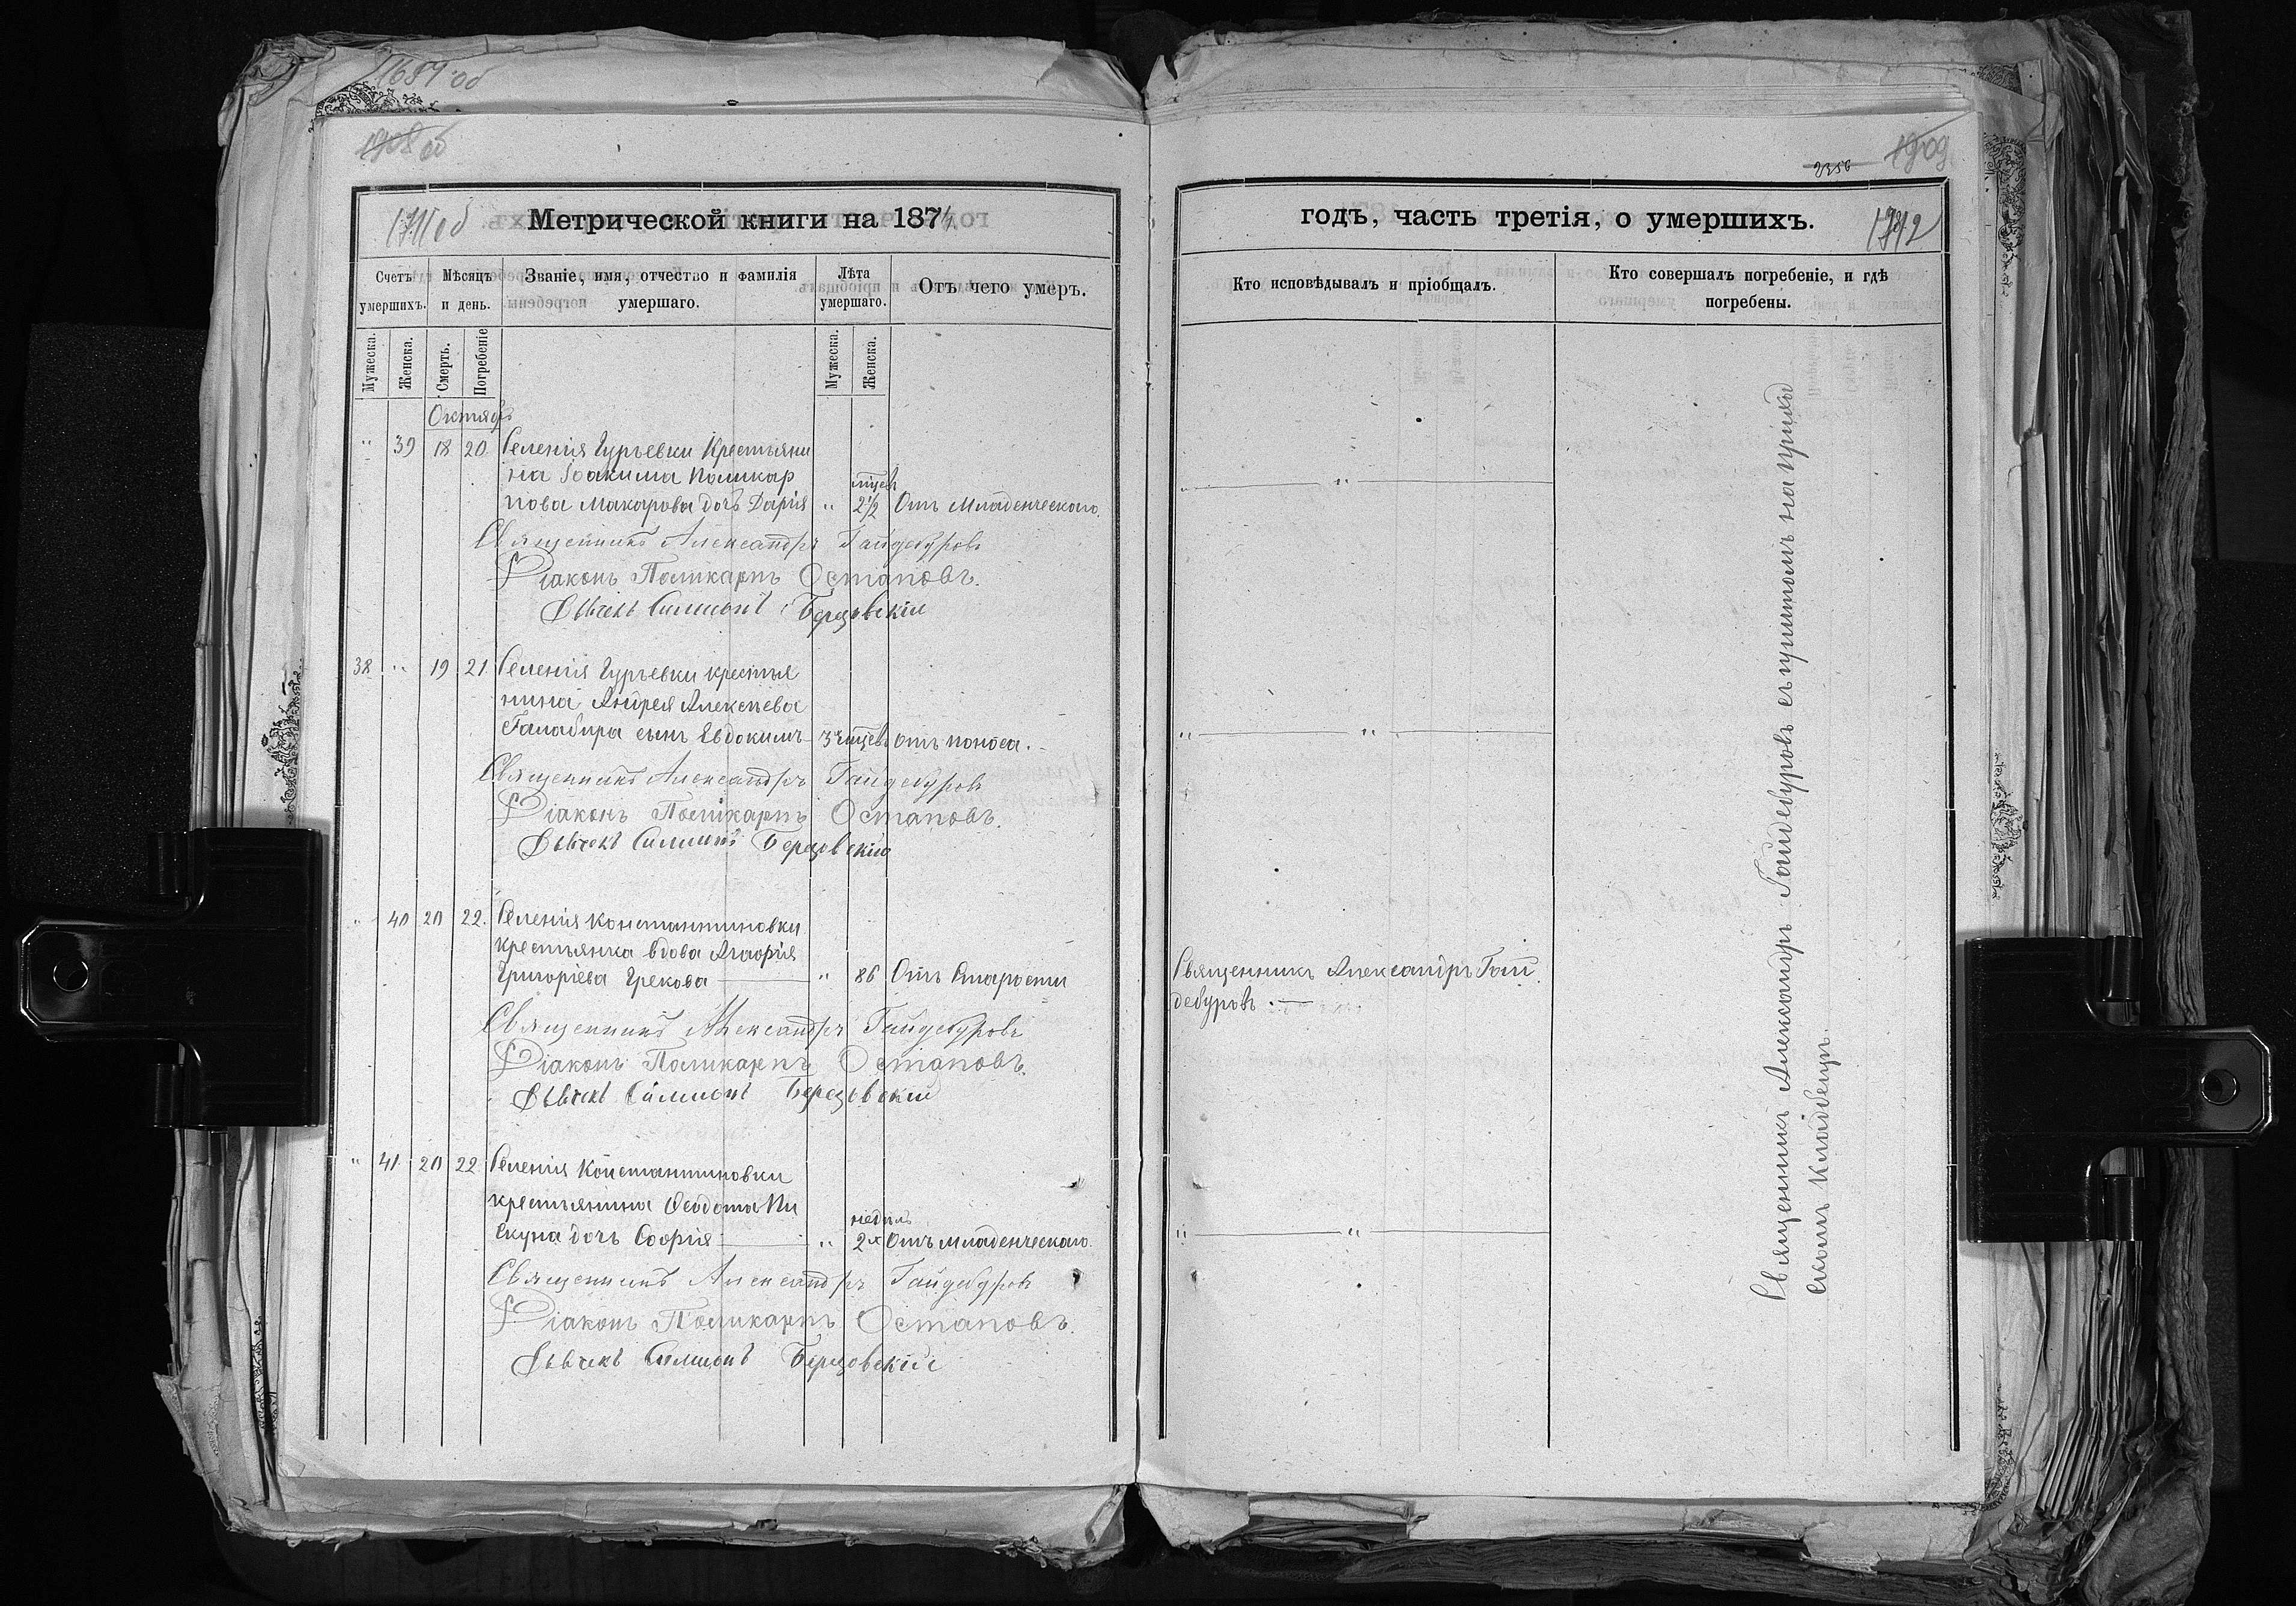 1687 об
1908 об
1711 об
Метрической книги на 1874
Счетъ умершихъ.
Мѣсяцъ и день.
Званіе, имя, отчество и фамилія умершаго.
Лѣта умершаго.
Отъ чего умеръ.
Мужеска.
Женска.
Смерть.
Погребеніе
Мужеска.
Женска.
Октябрь
" 39 18 20 Селенія Гурьевки Крестьяни
на Іоакима Поликар
пова Макарова дочь Дарія " 2½ мѣсец Отъ Младенческаго.
Священникъ Александръ Гайдебуровъ
Діаконъ Поликарпъ Остаповъ.
Дьячекъ Симеонъ Березовскій
38 " 19 21 Селенія Гурьевки крестья
нина Андрея Алексѣева
Галабира сынъ Евдокимъ 3 мѣсев отъ поноса.
Священникъ Александръ Гайдебуровъ
Діаконъ Поликарпъ Остаповъ.
Дьячекъ Симеонъ Березовскій
" 40 20 22. Селенія Константиновки
крестьянка вдова Агафія
Григоріева Грекова " 86 Отъ Старости
Священникъ Александръ Гайдебуровъ
Діаконъ Поликарпъ Остаповъ.
Дьячекъ Симеонъ Березовскій
" 41 20 22 Селенія Константиновки
крестьянина Ѳеодота Пи
скуна дочь Софія " 2х недѣль Отъ Младенческаго.
Священникъ Александръ Гайдебуровъ
Діаконъ Поликарпъ Остаповъ.
Дьячекъ Симеонъ Березовскій
1909
2356
годъ, часть третія, о умершихъ.
1712
Кто исповѣдывалъ и пріобщалъ.
Кто совершалъ погребеніе, и гдѣ погребены.
" "
" "
Священникъ Александръ Гай
дебуровъ.
" "
Священникъ Александръ Гайдебуровъ съ причтомъ на приход
скомъ кладбищѣ.